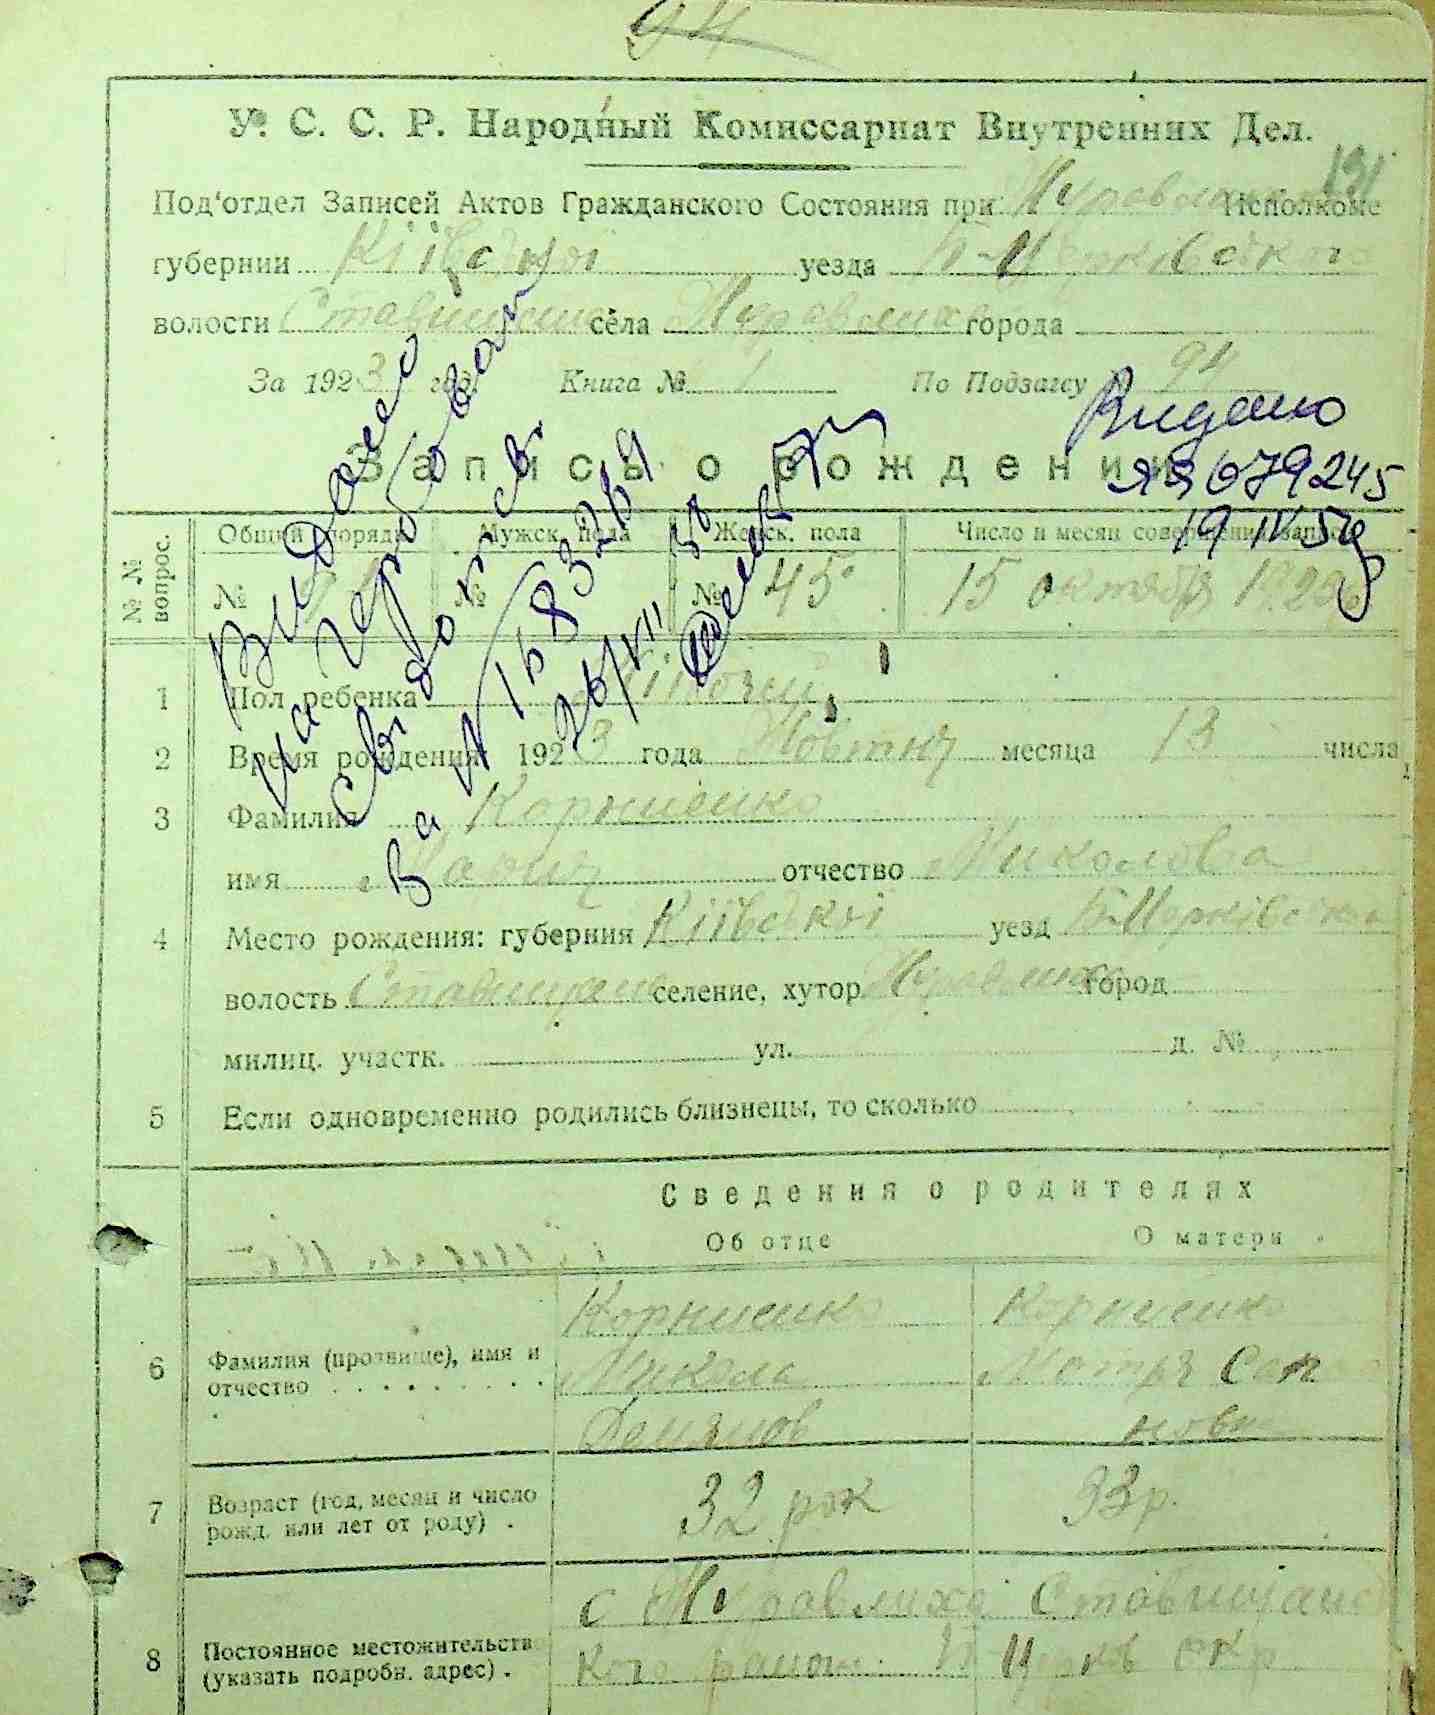 94
У. С. С. Р. Народный Комиссариат Внутренних Дел.
131
Под'отдел Записей Актов Гражданского Состояния при Исполкоме
губернии Київської уезда Б-Церківського
волости села Журавлиха города
За 1923 год Книга № 1 По Подзагсу 94
Видано
Запись о рождении
ЯЯ 679245
19 IV 5
№№ вопрос. Общий порядк Мужск. пола Женск. пола Число и месяц совершения записи
№ № № 45 15 октября 192
Видано
на
св
За № 168
26/VII 58
1 Пол ребенка Жіночий
2 Время рождения: 1923 года Жовтня месяца 13 числа
3 Фамилия Корниенко
имя отчество Миколова
4 Место рождения: губерния Київської уезд Б-Церківсько
волость Ставищан селение, хутор Журавлиха город
милиц. участк. ул. д. №
5 Если одновременно родились близнецы, то сколько
Сведения о родителях
Об отце О матери
Корниенко Корниенко
6 Фамилия (прозвище), имя и отчество Микола Мотря Сап
Демянов нова
7 Возраст (год, месяц и число рожд. или лет от роду) 32 рок 33 р.
с Журавлиха Ставищанс
8 Постоянное местожительств (указать подробн. адрес) кого району Б Церков окр